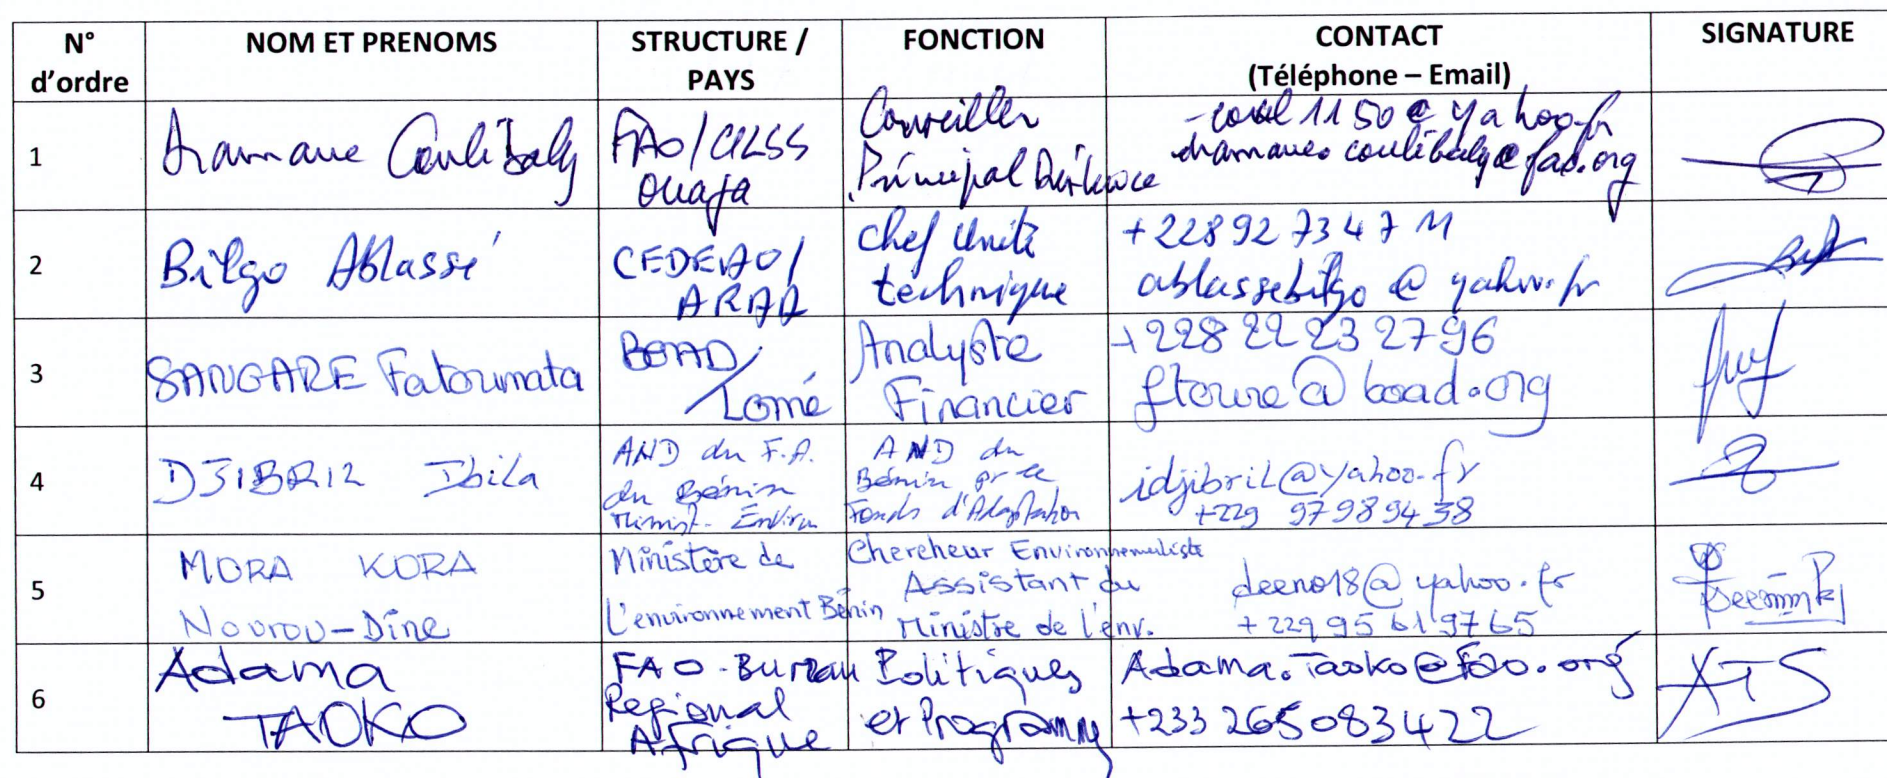 N° d'ordre NOM ET PRENOMS STRUCTURE / PAYS FONCTION CONTACT (Téléphone – Email) SIGNATURE
1
Dramane Coulibaly
FAO/CILSS
Ouaga
Conseiller
Principal Résilience
- coul1150@yahoo.fr
dramane.coulibaly@fao.org
2
Bilgo Ablassé
CEDEAO/
ARAA
Chef Unité
technique
+228 92 73 47 11
ablassebilgo@yahoo.fr
3
SANGARE Fatoumata
BOAD/
Lomé
Analyste
Financier
+228 22 23 27 96
ftoure@boad.org
4
DJIBRIL Ibila
AND du F.A.
du Bénin
Minist. Environ
AND du
Bénin pr le
Fonds d'Adaptation
idjibril@yahoo.fr
+229 97989438
5
MORA KORA
Nourou-Dine
Ministère de
L'environnement Bénin
Chercheur Environnementaliste
Assistant du
Ministre de l'env.
deeno18@yahoo.fr
+229 95 61 97 65
6
Adama
TAOKO
FAO-Bureau
Regional
Afrique
Politiques
et Programmes
Adama.Taoko@fao.org
+233 265083422
ATS